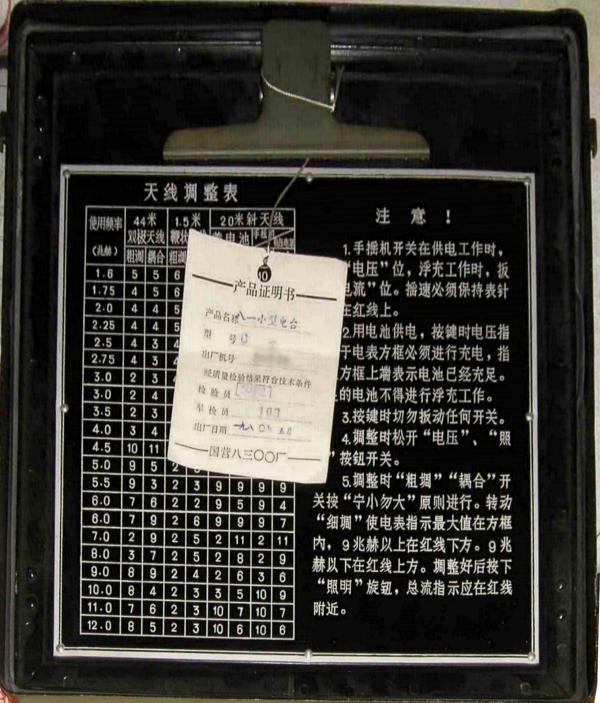 天线调整表
使用频率 44米 1.5米 20米斜天线
(兆赫) 双极天线 鞭状 电池
粗调 耦合 粗调
1.6 5 5 6
1.75 4 5 6
2.0 4 4 5
2.25 4 4 5
2.5 4 3 4
2.75 4 3 4
3.0 2 3 4
3.0 3 2
3.5 2 3
4.0 3 4
4.5 10 11
5.0 9 5
5.5 9 3 2 9 9 9 9
6.0 7 6 2 2 9 5 9 4
6.0 7 9 2 6 9 9 9 7
7.0 2 9 2 5 2 11 2 11
8.0 3 7 2 5 2 8 2 9
9.0 8 9 2 4 2 6 3 6
10.0 8 4 2 3 3 5 10 9
11.0 7 6 2 3 10 7 10 7
12.0 8 5 2 3 10 6 10 6
10
产品证明书
产品名称 八一小型电台
型号
出厂机号
经质量检验结果符合技术条件
检验员
军检员 103
出厂日期 一九八0
国营八三〇〇厂
注意!
1.手摇机开关在供电工作时,
“电压”位,浮充工作时,扳
电流”位。摇速必须保持表针
在红线上。
2.用电池供电,按键时电压指
于电表方框必须进行充电,指
方框上端表示电池已经充足。
的电池不得进行浮充工作。
3.按键时切勿扳动任何开关。
4.调整时松开“电压”、“照
”按钮开关。
5.调整时“粗调”“耦合”开
关按“宁小勿大”原则进行。转动
“细调”使电表指示最大值在方框
内,9兆赫以上在红线下方。9兆
赫以下在红线上方。调整好后按下
“照明”旋钮,总流指示应在红线
附近。